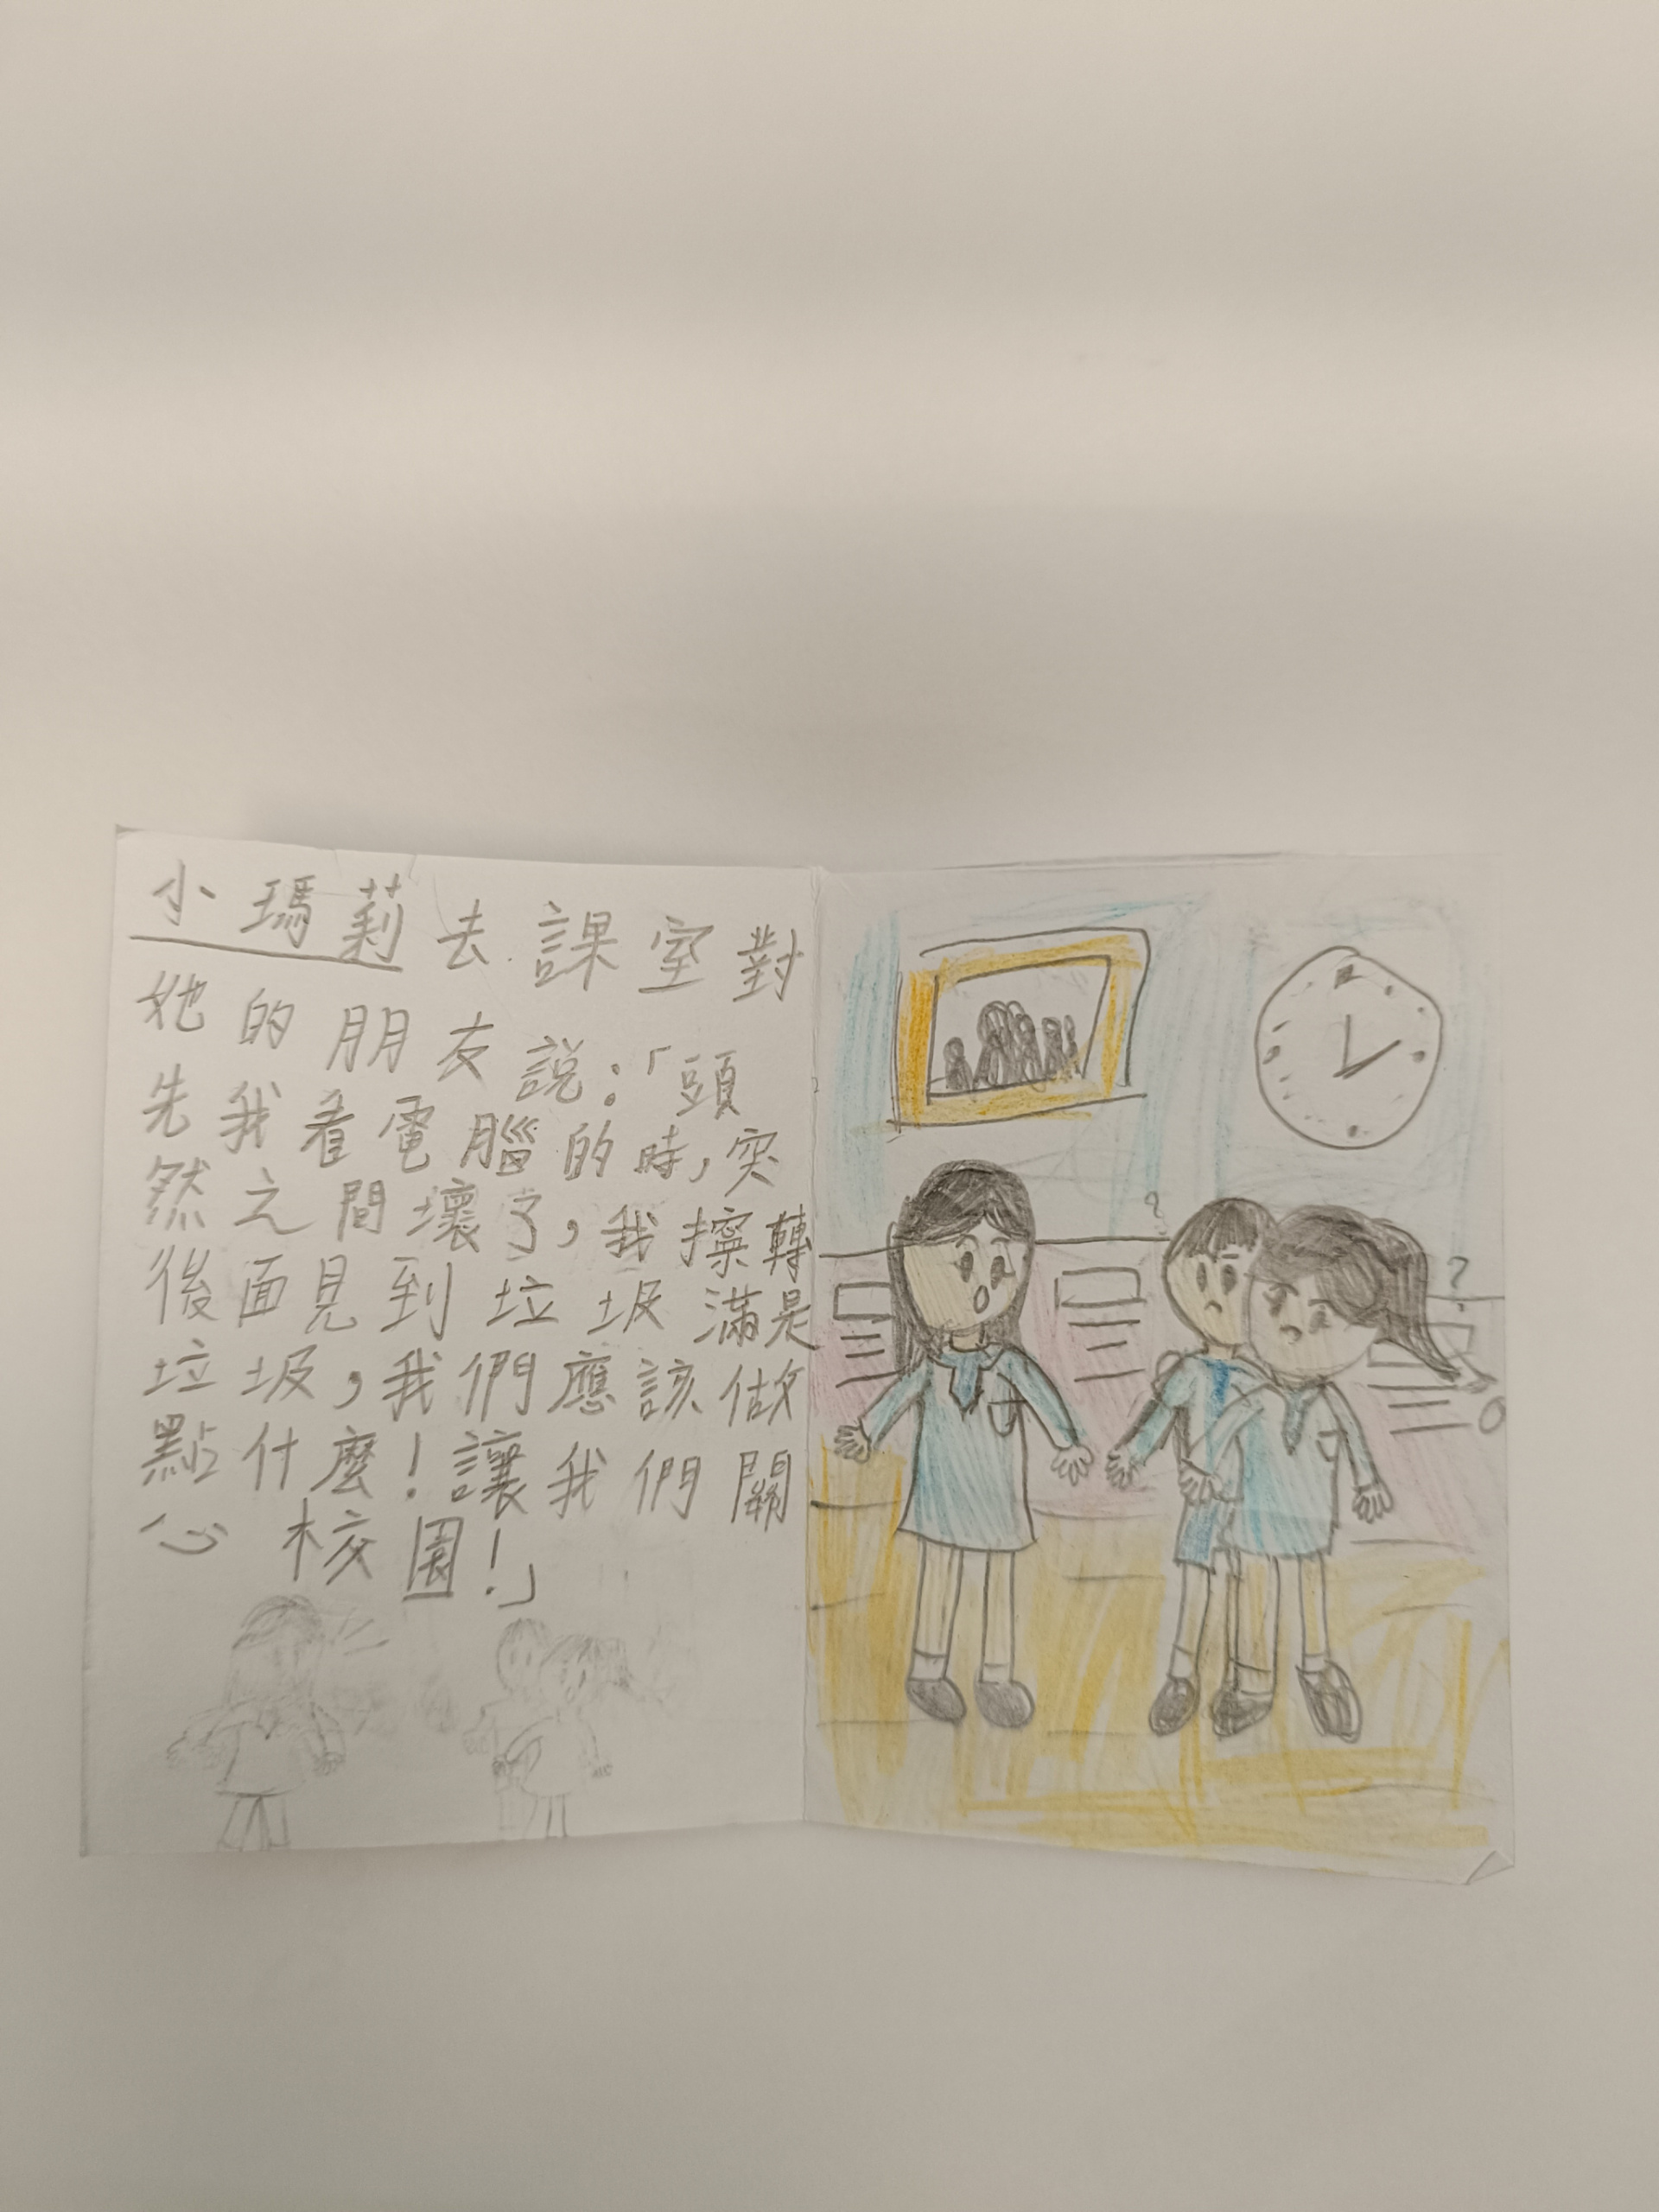 小瑪莉去課室對
她的朋友說:「頭
先我看電腦的時,突
然之間壞了,我擰轉
後面見到垃圾滿是
垃圾,我們應該做
點什麼!讓我們關
心校園!」
?
?